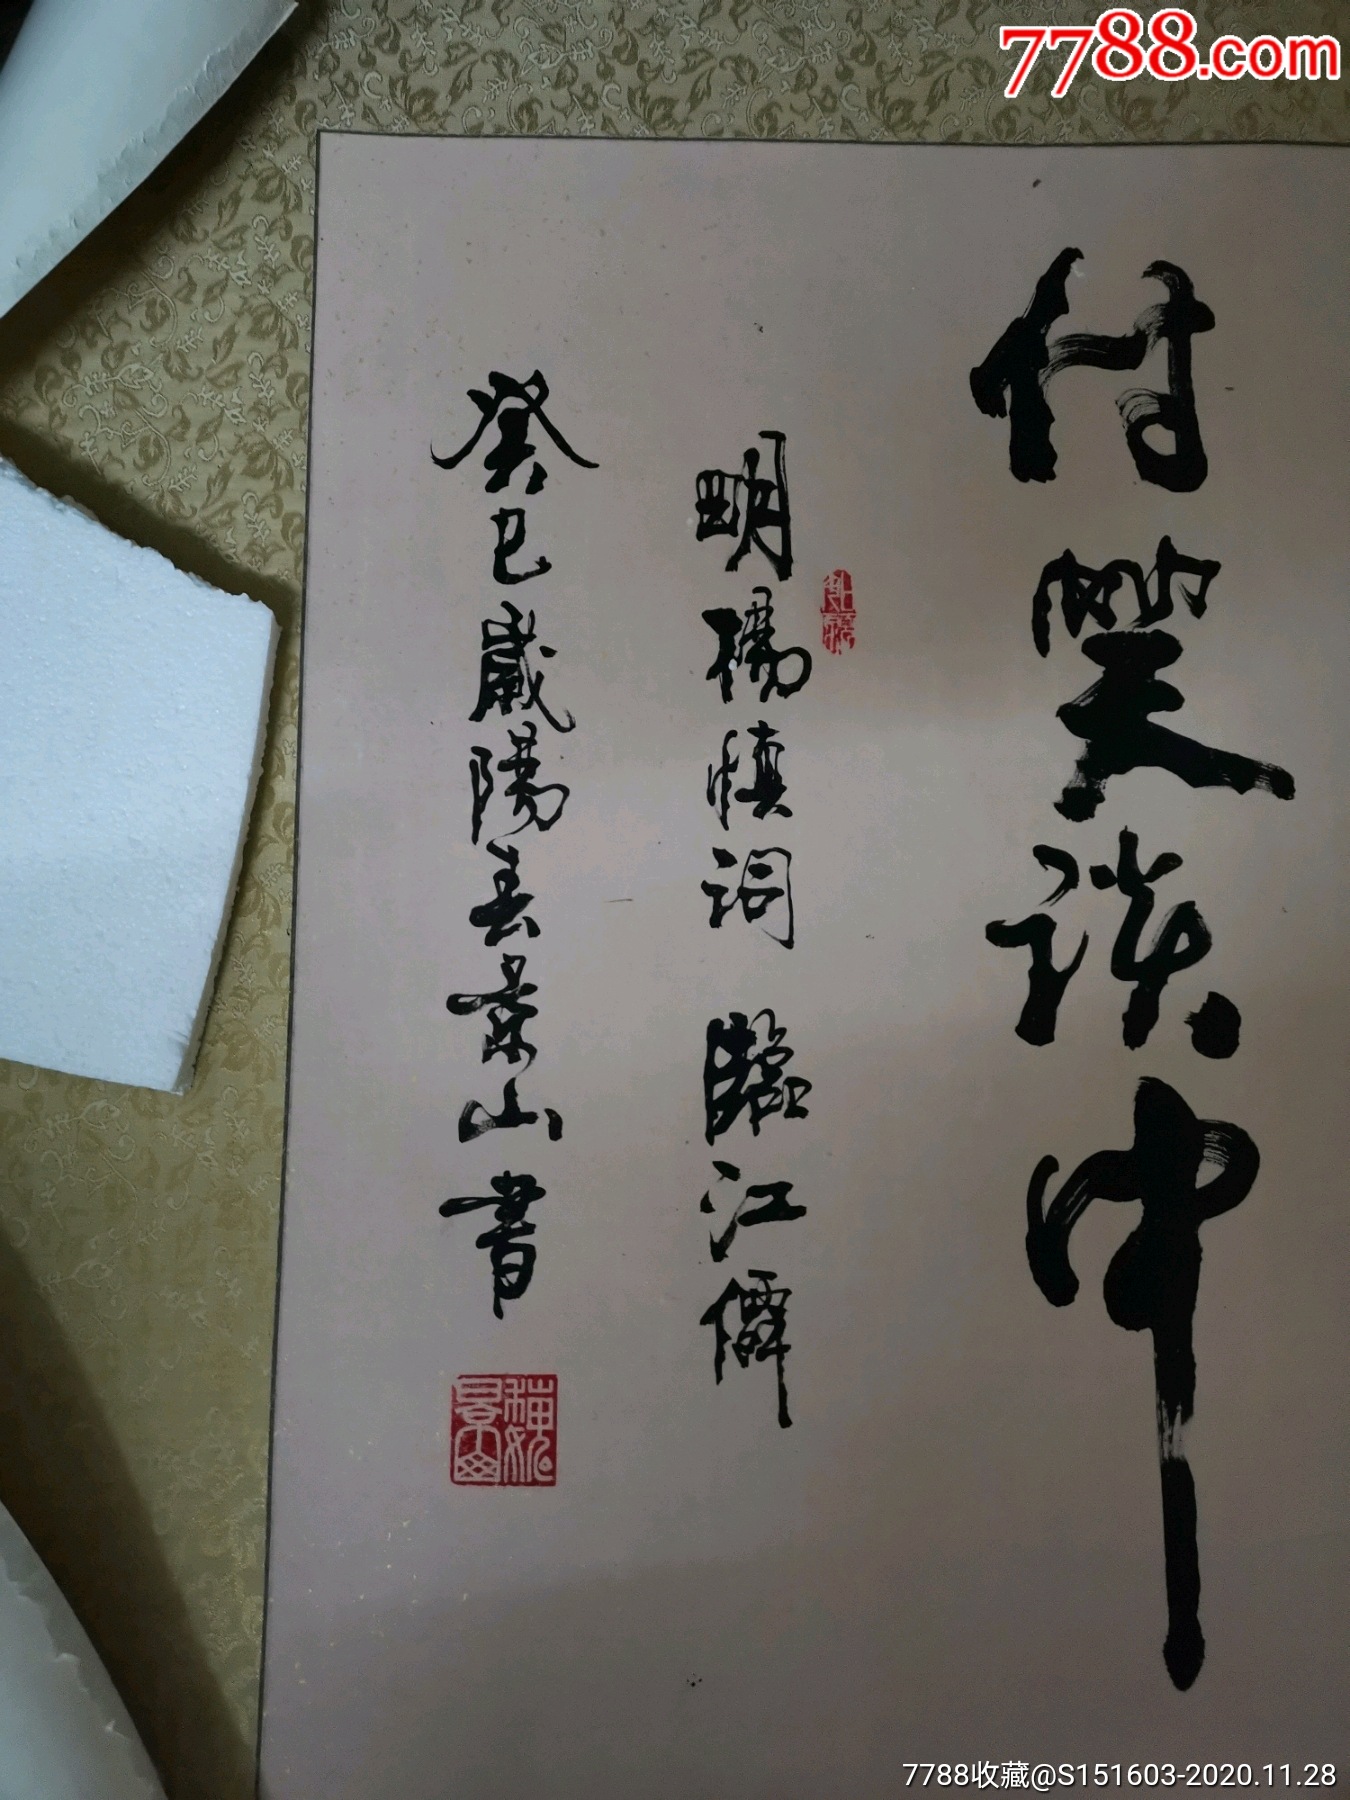 7788.com
付笑谈中
明楊慎词 臨江僊
癸巳歲陽春景山書
7788收藏@S151603-2020.11.28